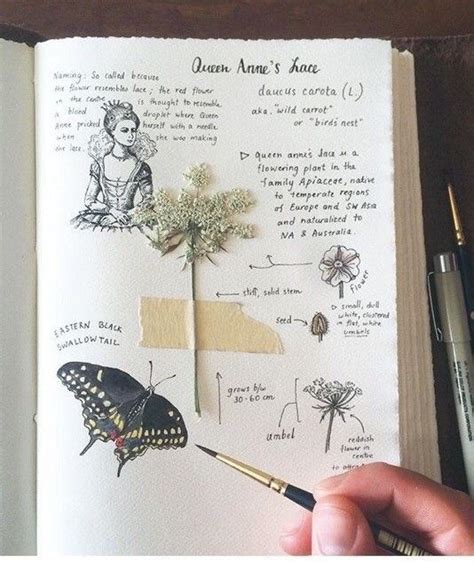 Queen Anne's Lace
Naming: So called because
the flower resembles lace; the red flower
in the centre is thought to resemble
a blood droplet where Queen
Anne pricked herself with a needle
when she was making
the lace.
daucus carota (L.)
aka "wild carrot"
or "bird's nest"
queen anne's lace is a
flowering plant in the
family Apiaceae, native
to temperate regions
of Europe and SW Asia
and naturalized to
NA & Australia.
flower
stiff, solid stem
small, dull
white, clustered
in flat, white
umbels
seed
EASTERN BLACK
SWALLOWTAIL
grows b/w
30-60 cm
umbel
reddish
flower in
centre
to attract